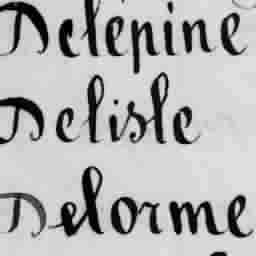 Delépine
Delisle
Delorme